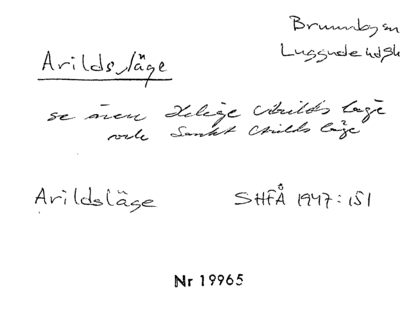 Brunnby sn
Luggude hd Sk
Arildsläge
se även Helige Arilds läge
och Sankt Arilds läge
Arildsläge SHFÅ 1947:151
Nr 19965